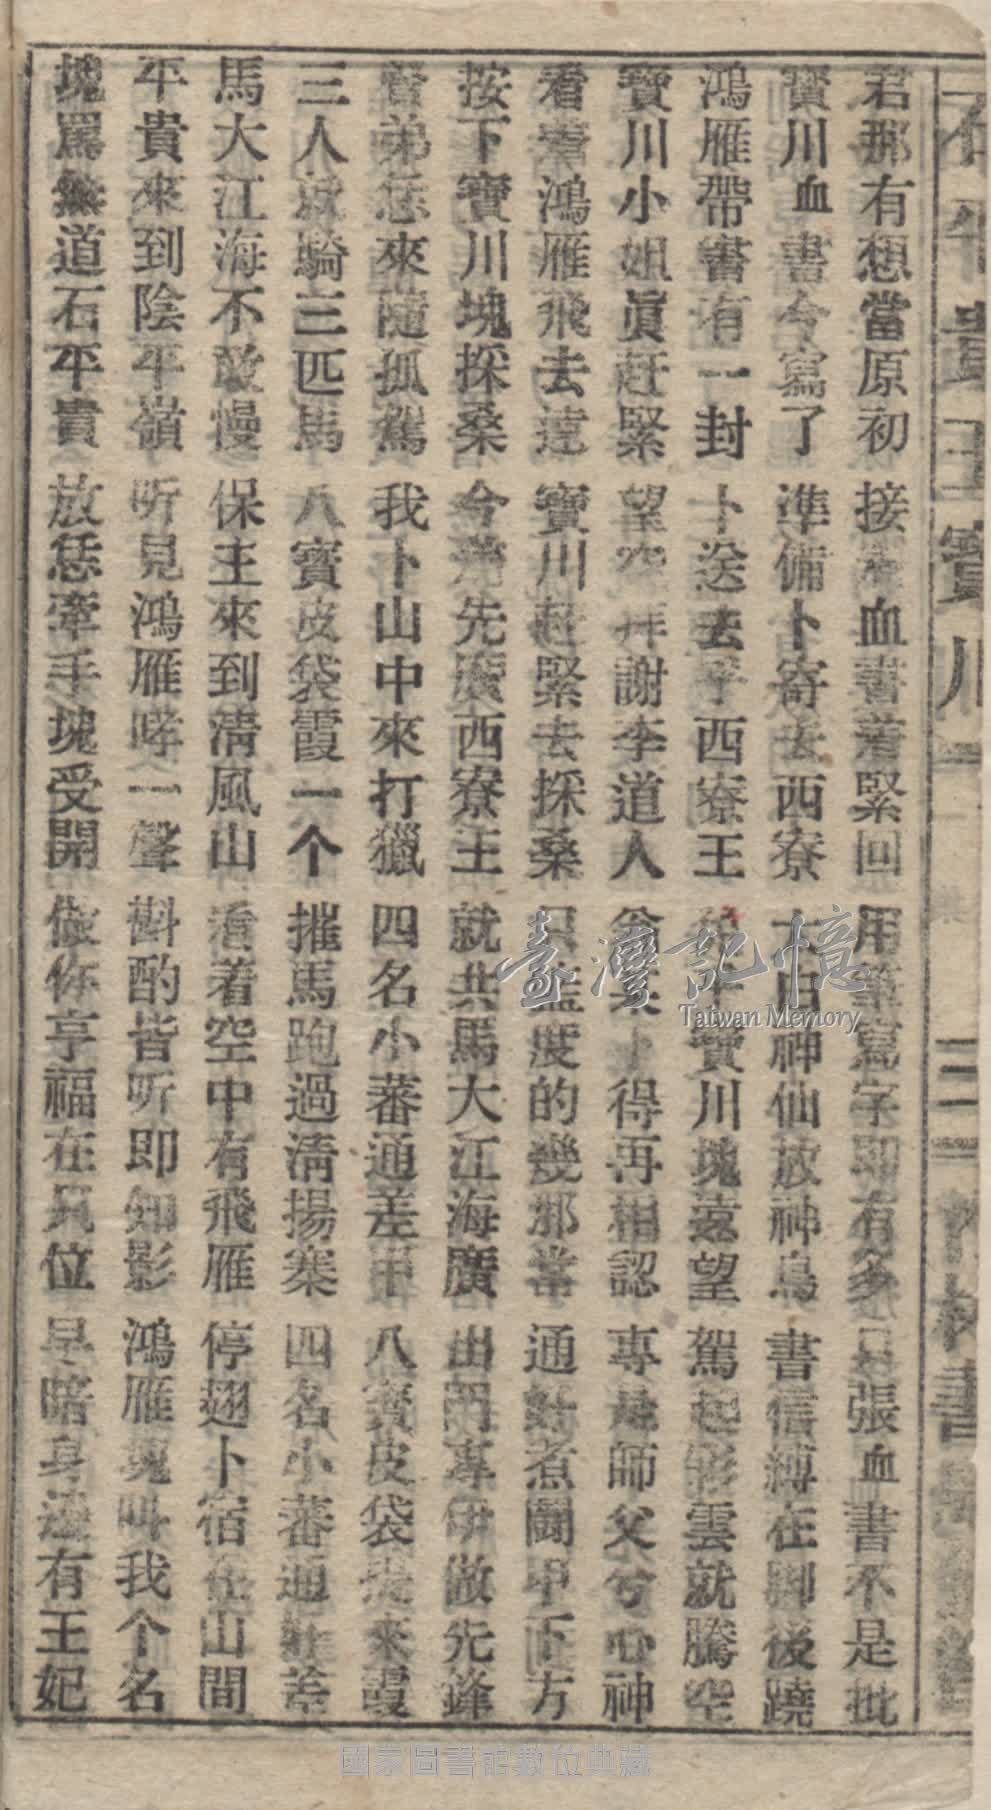 君那有想當原初 接着血書着緊回 用筆寫字即有多 只張血書不是批
寶川血書今寫了 準備卜寄去西寮 太白神仙放神鳥 書信縛在脚後蹺
鴻雁帶書有一封 卜送去乎西寮王 寶川塊遠望 駕起彩雲就騰空
寶川小姐眞赶緊 望空拜謝李道人 得再相認 專是師父兮心神
看書鴻雁飛去遠 寶川赶緊去採桑 度的幾那當 通好煮閙甲下方
按下寶川塊採桑 今先廣西寮王 就共馬大江海廣 出門專伊做先鋒
督弟恁來隨孤駕 我卜山中來打獵 四名小蕃通差甲 八寶皮袋提來霞
三人就騎三匹馬 八寶皮袋霞一个 摧馬跑過清揚寨 四名小蕃通好差
馬大江海不敢慢 保主來到清風山 看着空中有飛雁 停翅卜宿在山間
平貴來到陰平嶺 听見鴻雁哮一聲 斟酌皆听即知影 鴻雁塊叫我个名
塊罵無道石平貴 放恁牽手塊受開 做你享福在只位 早暗身邊有王妃
石平貴王寶川 二
臺灣記憶
Taiwan Memory
國家圖書館數位典藏